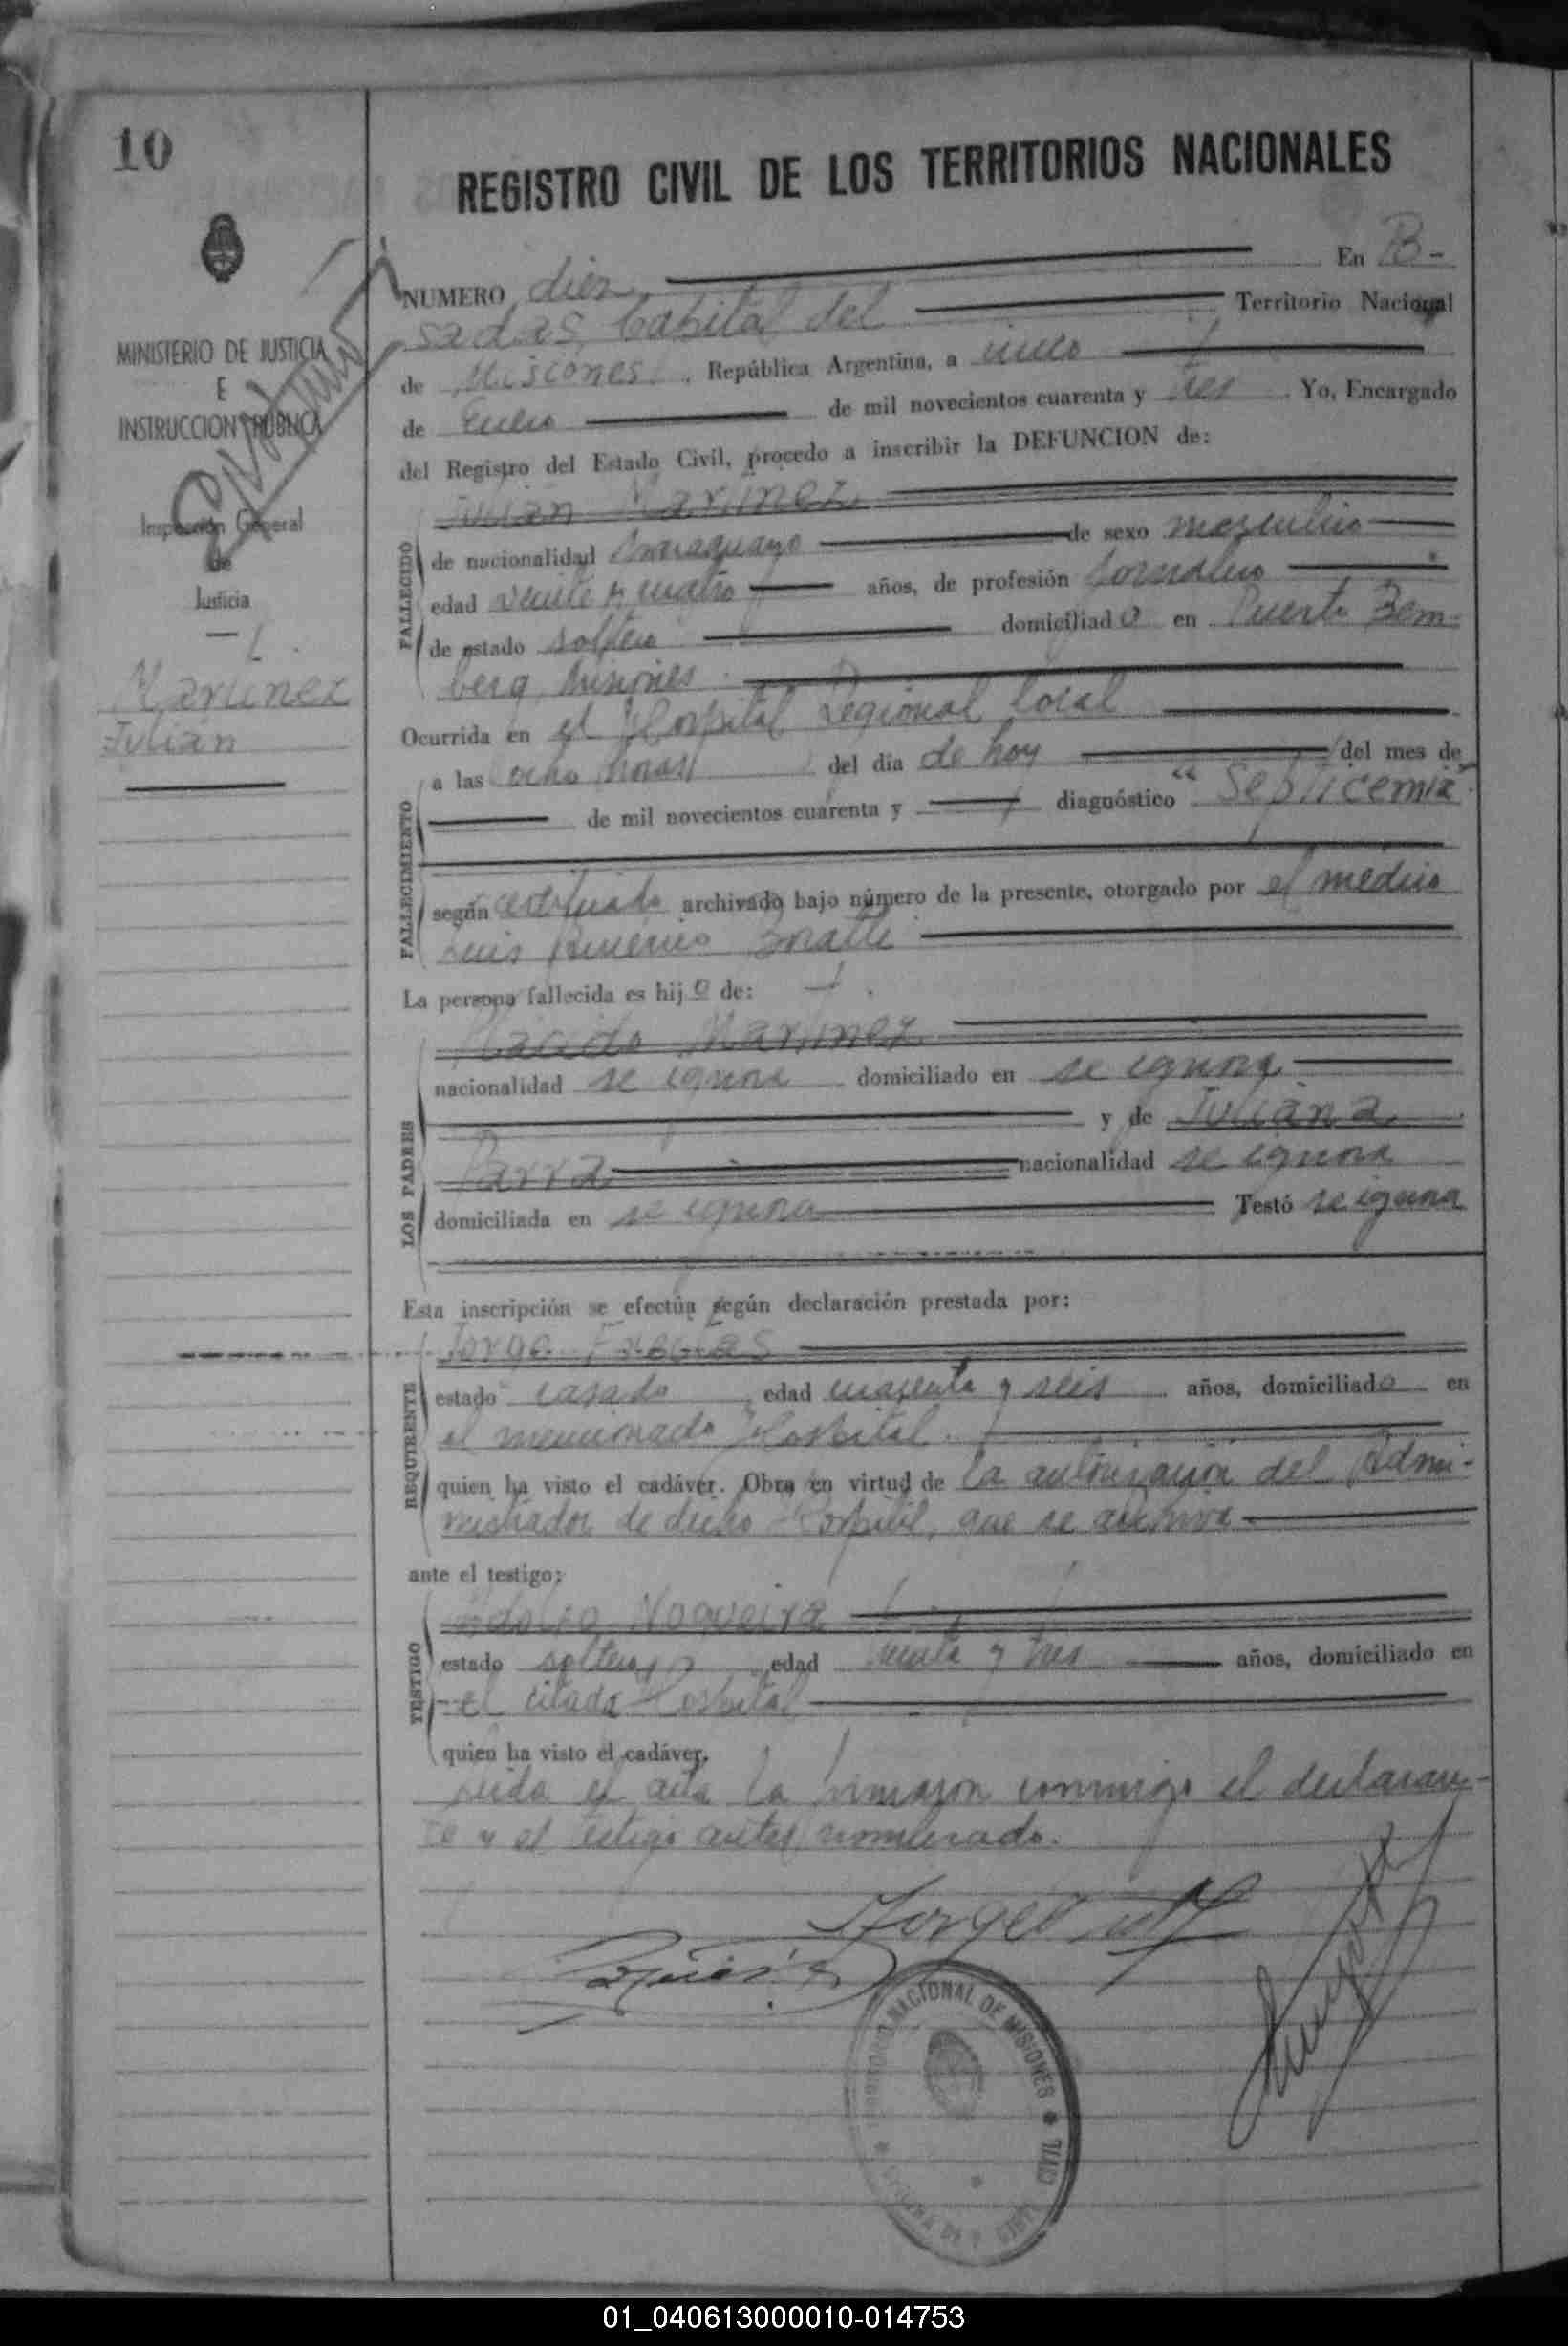 10
REGISTRO CIVIL DE LOS TERRITORIOS NACIONALES
MINISTERIO DE JUSTICIA
E
INSTRUCCION PUBLICA
Inspección General
de
Justicia
Martinez
Julián
NUMERO diez En Po-
sadas Capital del Territorio Nacional
de Misiones, República Argentina, a cinco
de Enero de mil novecientos cuarenta y tres. Yo, Encargado
del Registro del Estado Civil, procedo a inscribir la DEFUNCION de:
Julián Martinez
FALLECIDO
de nacionalidad Paraguayo de sexo masculino
edad veinte y cuatro años, de profesión Jornalero
de estado soltero domiciliado en Puerto Bem-
berg, Misiones
Ocurrida en el Hospital Regional local
FALLECIMIENTO
a las ocho horas del día de hoy del mes de
de mil novecientos cuarenta y diagnóstico "Septicemia"
según certificado archivado bajo número de la presente, otorgado por el médico
Luis
La persona fallecida es hijo de:
LOS PADRES
Plácido Martinez
nacionalidad se ignora domiciliado en se ignora
y de Juliana
Parra nacionalidad se ignora
domiciliada en se ignora Testó se ignora
Esta inscripción se efectúa según declaración prestada por:
REQUIRENTE
Jorge
estado casado edad cuarenta y seis años, domiciliado en
el mencionado Hospital.
quien ha visto el cadáver. Obra en virtud de la autorización del Admi-
nistrador de dicho Hospital, que se archiva
ante el testigo:
TESTIGO
Adolfo Nogueira
estado soltero edad y tres años, domiciliado en
el citado Hospital
quien ha visto el cadáver.
Leida el acta la firmaron conmigo el declaran-
te y el testigo antes nombrado.
TERRITORIO NACIONAL DE MISIONES
CIVIL
01_040613000010-014753